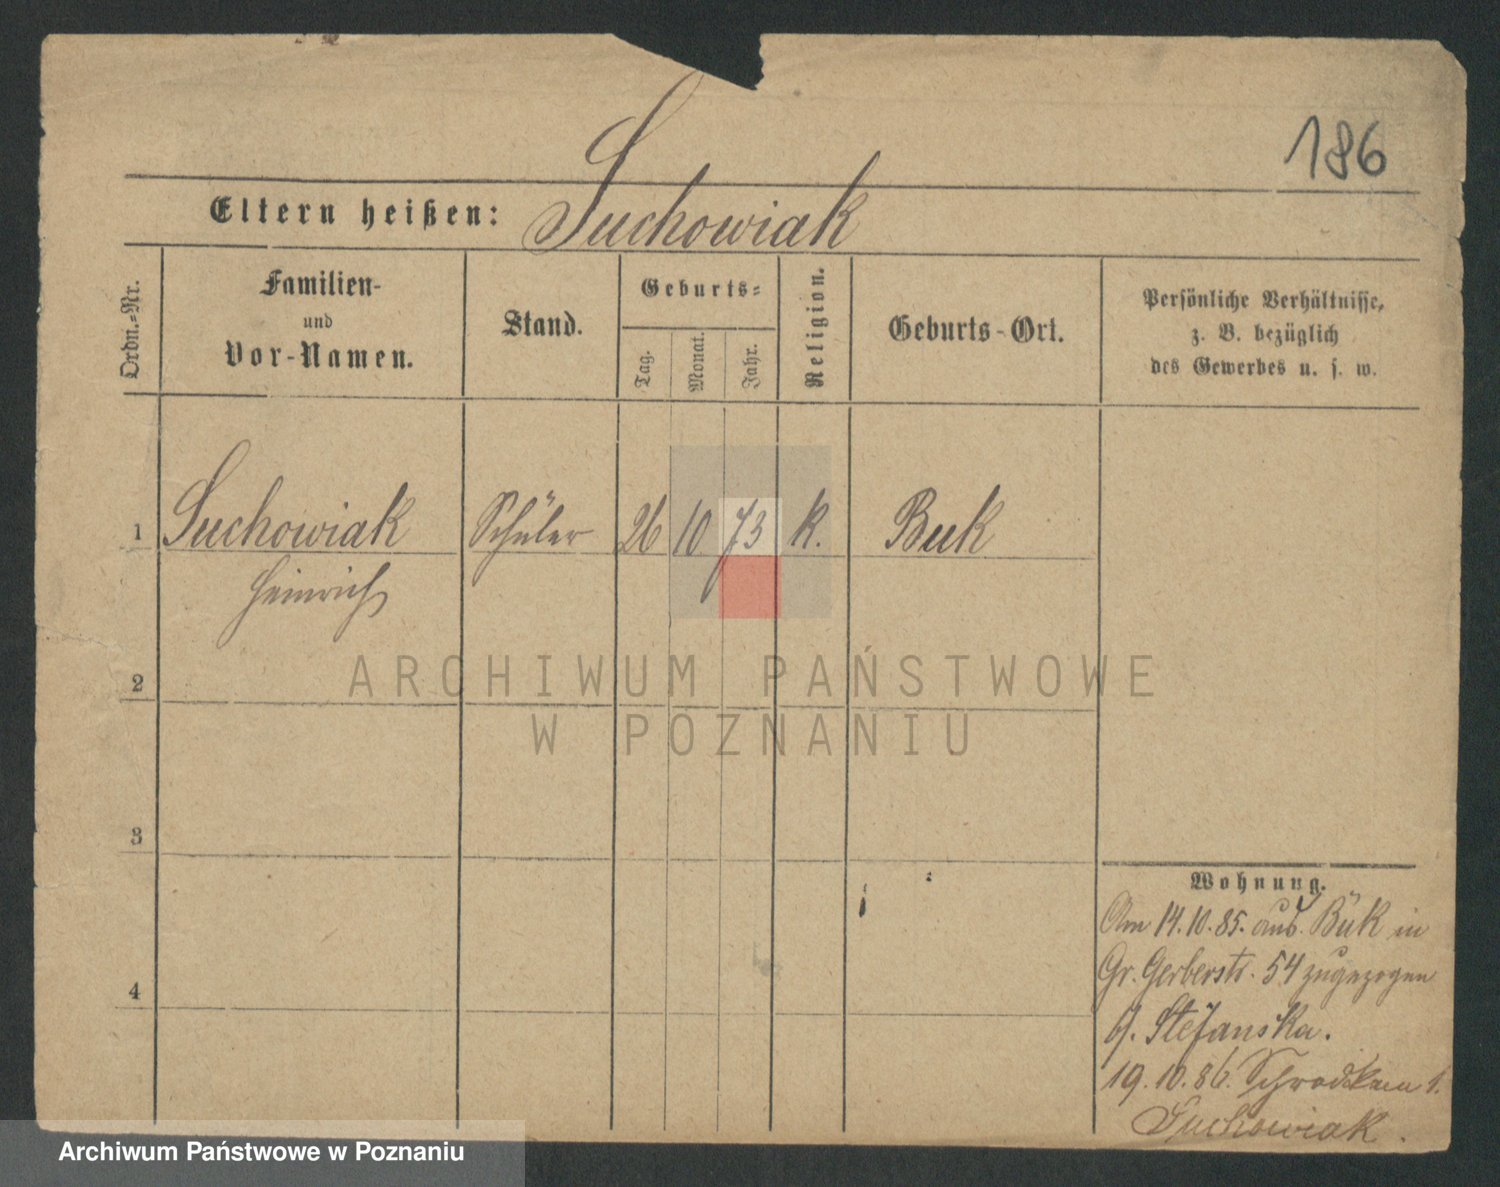 186
Eltern heißen: Suchowiak
Ordn.-Nr.
Familien-
und
Vor-Namen.
Stand.
Geburts-
Tag.
Monat.
Jahr.
Religion.
Geburts-Ort.
Persönliche Verhältnisse,
z. B. bezüglich
des Gewerbes u. s. w.
1 Suchowiak Schüler 26 10 73 k. Buk
Heinrich
2
3
4
Wohnung.
Am 14.10.85. aus Buk in
Gr. Gerberstr. 54 zugezogen
b. Stefanska.
19.10.86. Schrodkam 1.
Suchowiak.
ARCHIWUM PAŃSTWOWE
W POZNANIU
Archiwum Państwowe w Poznaniu